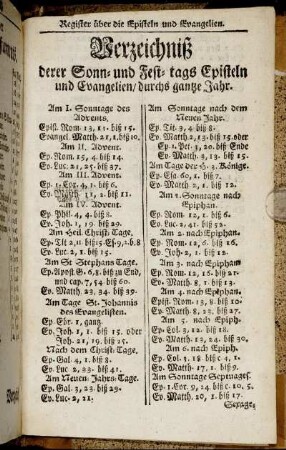 Register über die Episteln und Evangelien.
Verzeichniß
derer Sonn- und Fest- tags Episteln
und Evangelien/ durchs gantze Jahr.
Am I. Sonntage des
Advents.
Epist. Rom. 13, 11. biß 15.
Evangel. Matth. 21, 1. biß 10.
Am II. Advent.
Ep. Rom. 15, 4. biß 14.
Ev. Luc. 21, 25. biß 37.
Am III. Advent.
Ep. 1. Cor. 4, 1. biß 6.
Ev. Matth. 11, 2. biß 11.
Am IV. Advent.
Ep. Phil. 4, 4. biß 8.
Ev. Joh. 1, 19. biß 29.
Am Heil Christ. Tage.
Ep. Tit 2, 11 biß 15. Es 9, 2. b. 8
Ev. Luc. 2, 1. biß 15.
Am St. Stephans Tage.
Ep. Apost. G. 6, 8. biß zu End,
und cap. 7, 54. biß 60.
Ev. Matth. 23, 34. biß 39.
Am Tage St. Johannis
des Evangelisten.
Ep. Ebr. 1, gantz.
Ev. Joh. 1, 1. biß 15. oder
Joh. 21, 19. biß 25.
Nach dem Christ. Tage.
Ep. Gal. 4, 1. biß 8.
Ev. Luc 2, 33. biß 41.
Am Neuen Jahrs Tage.
Ep. Gal. 3, 23. biß 29.
Ev. Luc. 2, 21.
Am Sonntage nach dem
Neuen Jahr.
Ep. Tit. 3, 4. biß 8.
Ev. Matth 2, 13. biß 15. oder
Ep. 1. Pet. 3, 20. biß Ende
Ev. Matth. 3, 13. biß 15.
Am Tage der H. 3. Könige.
Ep. Esa. 60, 1. biß 7.
Ev. Matth 2, 1. biß 12.
Am 1. Sonntage nach
Epiphan.
Ep. Rom. 12, 1. biß 6.
Ev. Luc. 2, 41. biß 52.
Am 2. nach Epiphan.
Ep. Rom. 12, 6. biß 16.
Ev. Joh. 2, 1. biß 12.
Am 3. nach Epiphan.
Ep. Rom. 12, 16. biß 21.
Ev. Matth. 8, 1. biß 14.
Am 4. nach Epiphan.
Epist. Rom. 13, 8. biß 10.
Ev. Matth. 8, 23. biß 27.
Am 5. nach Epiph.
Ep. Col. 3, 12. biß 18.
Ev. Matth. 13, 24. biß 30.
Am 6. nach Epiph.
Ep. Col. 3, 18. biß c. 4, 1.
Ev. Matth. 17, 1. biß 9.
Am Sonntage Septuages.
Ep. 1. Cor. 9, 24. biß c. 10, 5.
Ev. Matth 20, 1. biß 17.
Sexage-